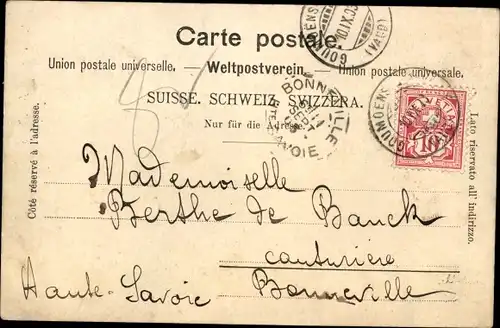 Carte postale.
Union postale universelle. — Weltpostverein. — Unione postale universale.
SUISSE. SCHWEIZ. SVIZZERA.
Nur für die Adresse.
Côté réservé à l'adresse.
Lato riservato all' indirizzo.
GOUMOENS
(VAUD)
BONNEVILLE
HTE SAVOIE
GOUMOENS
10
Mademoiselle
Berthe de Banck
couturière
Haute-Savoie Bonneville